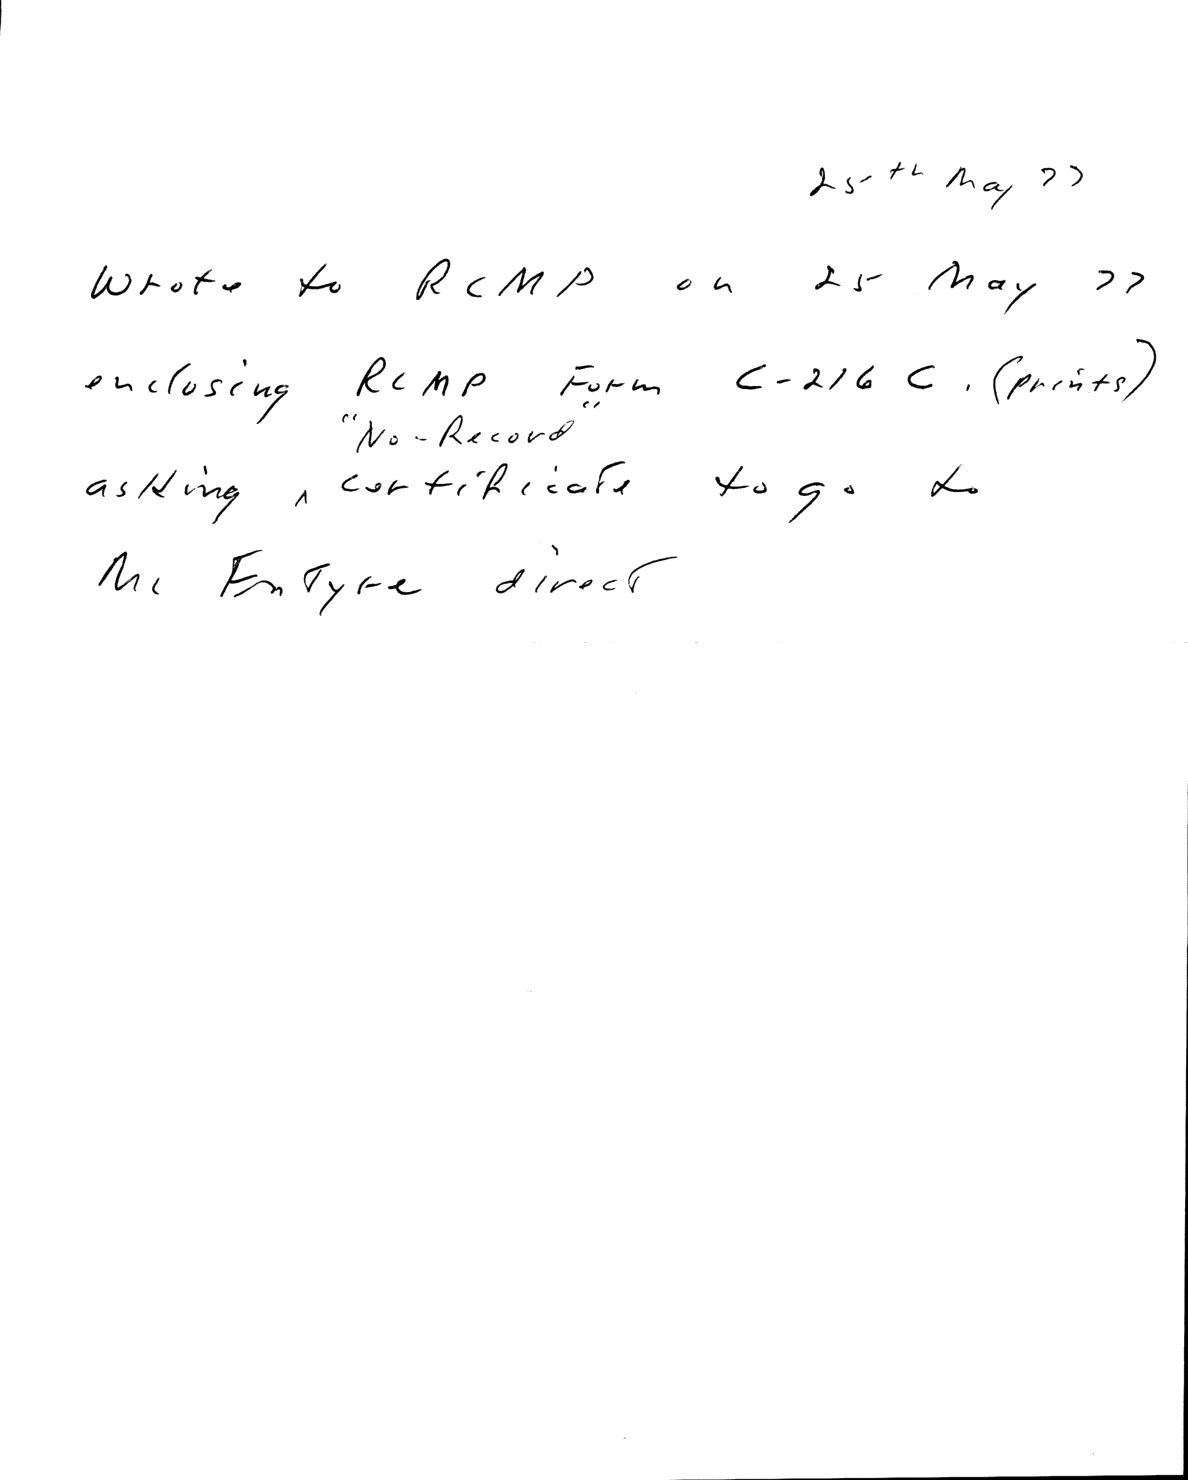 25th May 77
Wrote to RCMP on 25 May 77
enclosing RCMP Form C-216 C. (prints)
"No-Record"
asking ^ certificate to go to
Mc EnTyre direct